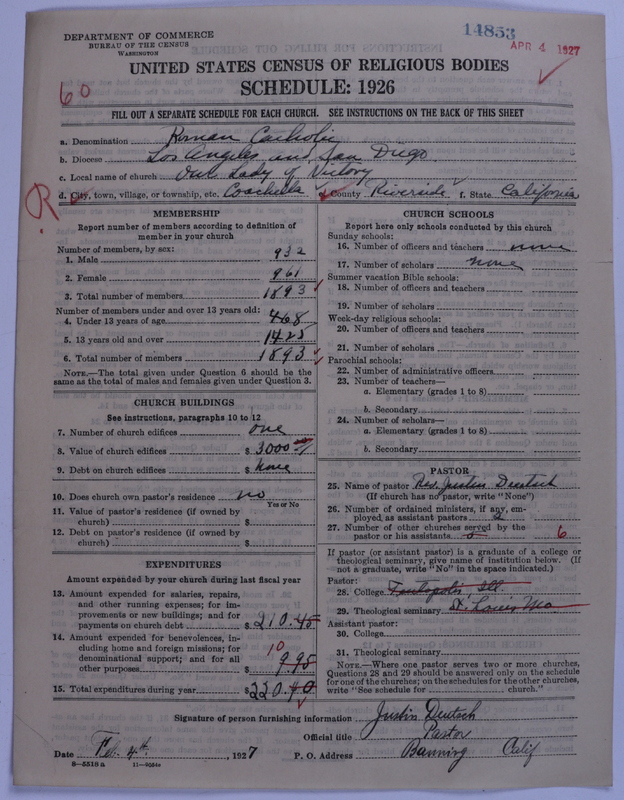 DEPARTMENT OF COMMERCE
BUREAU OF THE CENSUS
WASHINGTON
14853
APR 4 1927
UNITED STATES CENSUS OF RELIGIOUS BODIES
SCHEDULE: 1926
60
FILL OUT A SEPARATE SCHEDULE FOR EACH CHURCH. SEE INSTRUCTIONS ON THE BACK OF THIS SHEET
a. Denomination Roman Catholic
b. Diocese Los Angeles and San Diego
c. Local name of church Our Lady of Victory
d. City, town, village, or township, etc. Coachella e. County Riverside f. State California
R
MEMBERSHIP
Report number of members according to definition of
member in your church
Number of members, by sex:
1. Male 932
2. Female 961
3. Total number of members 1893
Number of members under and over 13 years old:
4. Under 13 years of age 468
5. 13 years old and over 1425
6. Total number of members 1893
NOTE.—The total given under Question 6 should be the
same as the total of males and females given under Question 3.
CHURCH BUILDINGS
See instructions, paragraphs 10 to 12
7. Number of church edifices one
8. Value of church edifices $ 3000 00
9. Debt on church edifices $ none
10. Does church own pastor's residence no
Yes or No
11. Value of pastor's residence (if owned by
church) $
12. Debt on pastor's residence (if owned by
church) $
EXPENDITURES
Amount expended by your church during last fiscal year
13. Amount expended for salaries, repairs,
and other running expenses; for im-
provements or new buildings; and for
payments on church debt $ 210.45
14. Amount expended for benevolences, in-
cluding home and foreign missions; for
denominational support; and for all
other purposes $ 9 95
10
15. Total expenditures during year $ 220.40
CHURCH SCHOOLS
Report here only schools conducted by this church
Sunday schools:
16. Number of officers and teachers none
17. Number of scholars none
Summer vacation Bible schools:
18. Number of officers and teachers
19. Number of scholars
Week-day religious schools:
20. Number of officers and teachers
21. Number of scholars
Parochial schools:
22. Number of administrative officers
23. Number of teachers—
a. Elementary (grades 1 to 8)
b. Secondary
24. Number of scholars—
a. Elementary (grades 1 to 8)
b. Secondary
PASTOR
25. Name of pastor Rev. Justin Deutsch
(If church has no pastor, write "None")
26. Number of ordained ministers, if any, em-
ployed as assistant pastors
27. Number of other churches served by the
pastor or his assistants 6
If pastor (or assistant pastor) is a graduate of a college or
theological seminary, give name of institution below. (If
not a graduate, write "No" in the space indicated.)
Pastor:
28. College Teutopolis, Ill.
29. Theological seminary St. Louis Mo
Assistant pastor:
30. College
31. Theological seminary
NOTE.—Where one pastor serves two or more churches,
Questions 28 and 29 should be answered only on the schedule
for one of the churches; on the schedules for the other churches,
write "See schedule for church."
Signature of person furnishing information Justin Deutsch
Official title Pastor
Date Feb. 4th, 1927 P. O. Address Banning Calif
8—5518 a